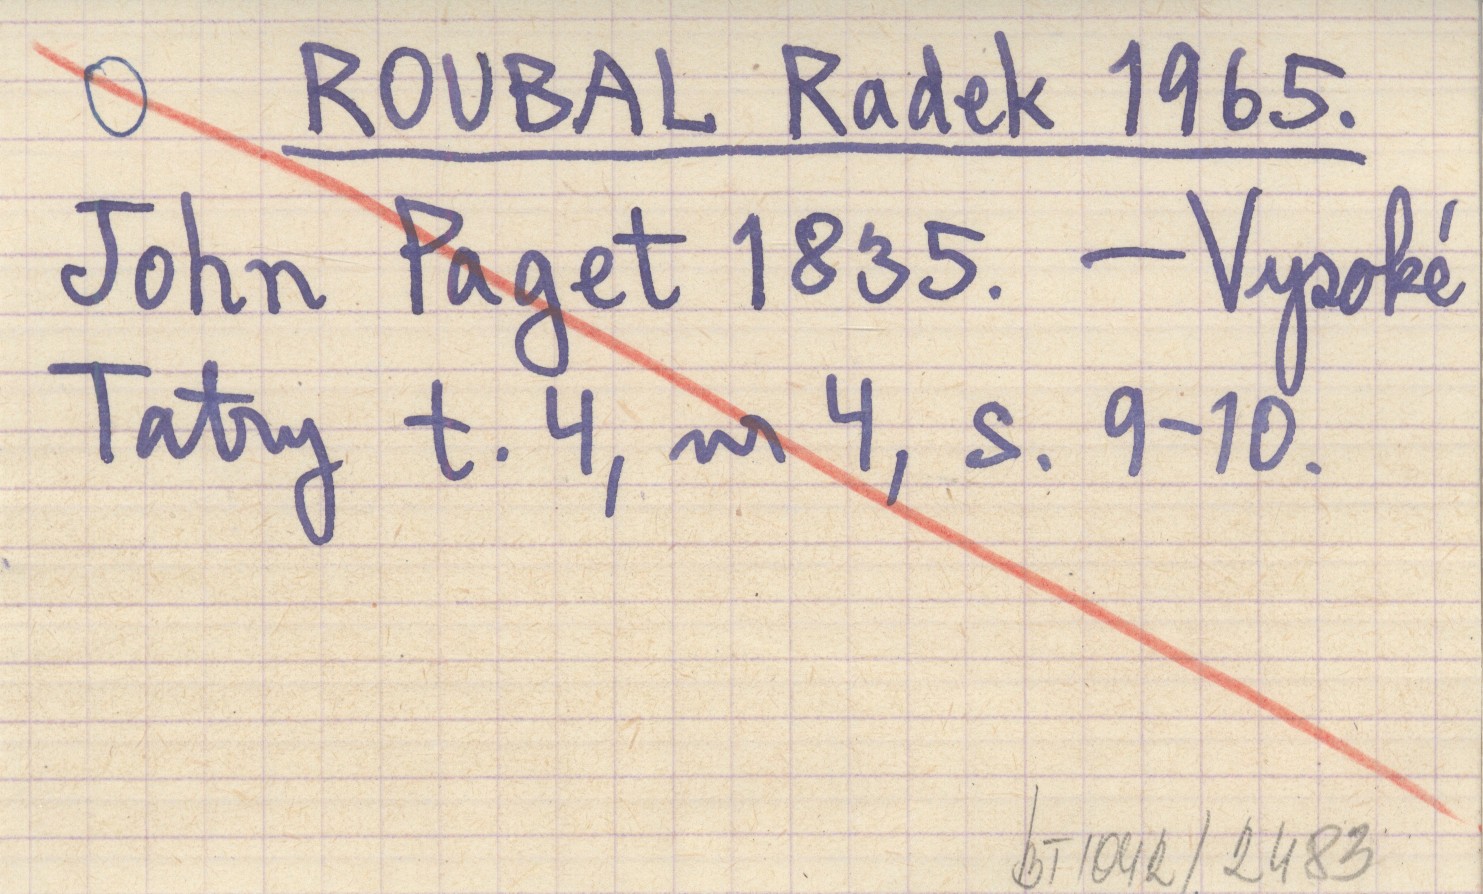 O ROUBAL Radek 1965.
John Paget 1835. — Vysoké
Tatry t. 4, nr 4, s. 9-10.
bT 1042/2483